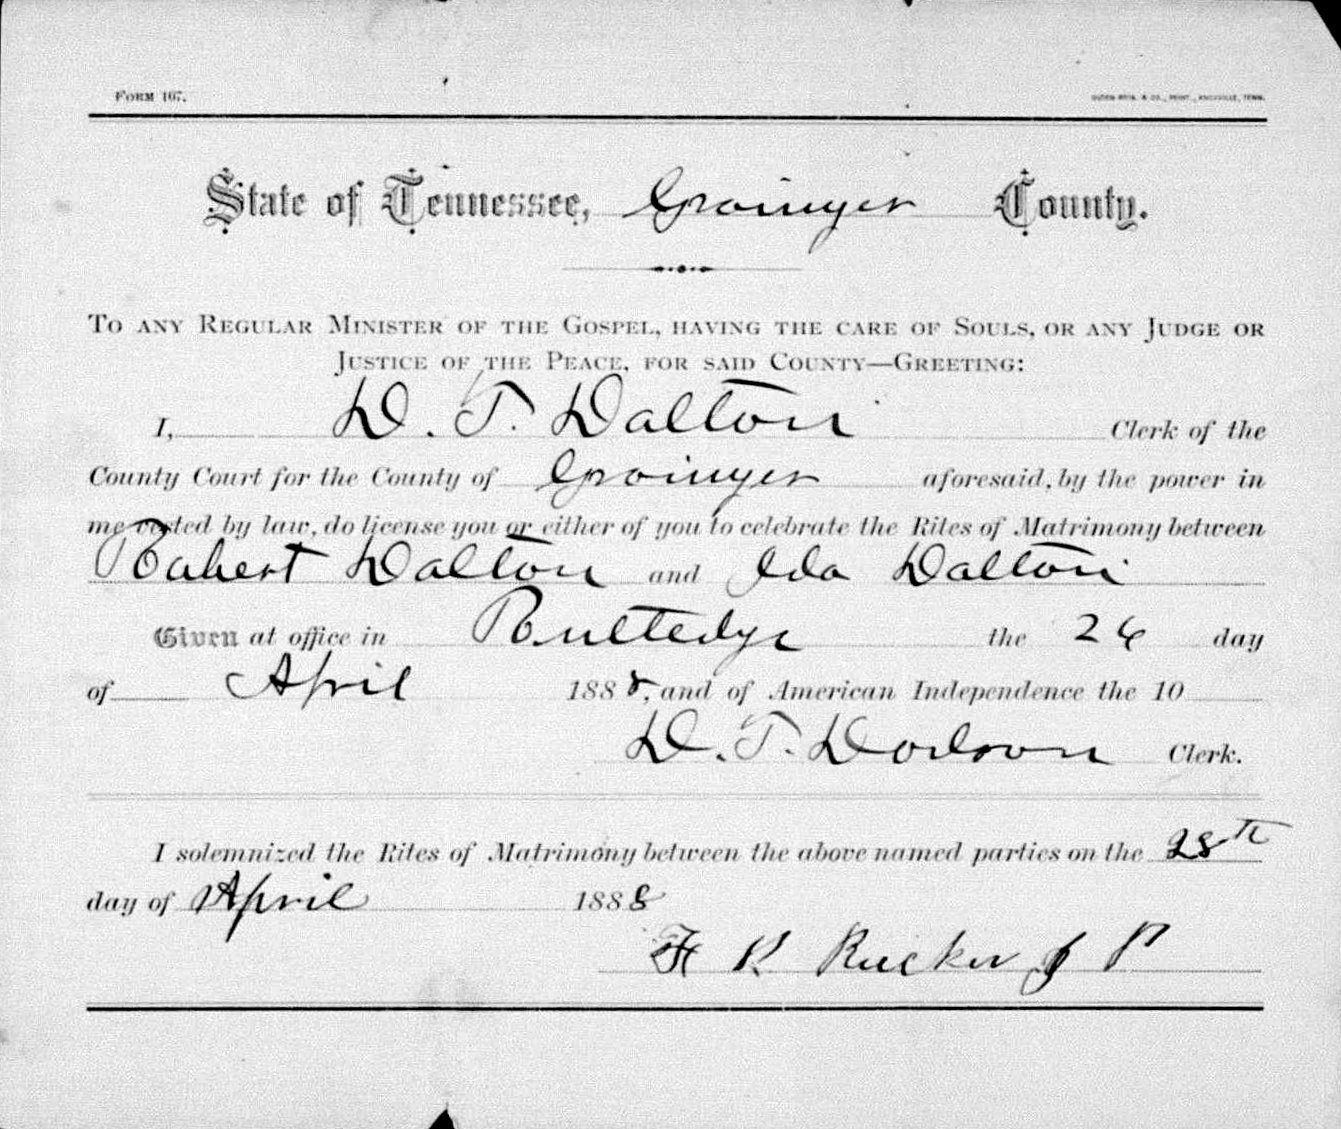 FORM 167.
State of Tennessee, Grainger County.
TO ANY REGULAR MINISTER OF THE GOSPEL, HAVING THE CARE OF SOULS, OR ANY JUDGE OR
JUSTICE OF THE PEACE, FOR SAID COUNTY—GREETING:
I, D. T. Dalton Clerk of the
County Court for the County of Grainger aforesaid, by the power in
me vested by law, do license you or either of you to celebrate the Rites of Matrimony between
Robert Dalton and Ida Dalton
Given at office in Rutledge the 26 day
of April 1888, and of American Independence the 10
D. T. Dodson Clerk.
I solemnized the Rites of Matrimony between the above named parties on the 28th
day of April 1888
R Rucker J P